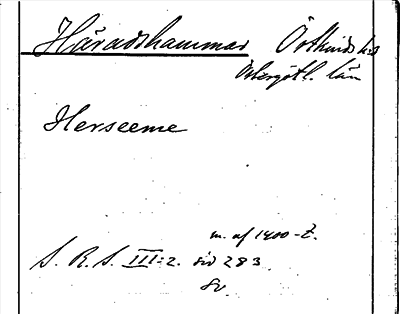 Häradshammar Östkinds hd
Östergötl. län
Herseeme
m. af 1400-t.
S. R. S. III:2. sid 283
Sv.